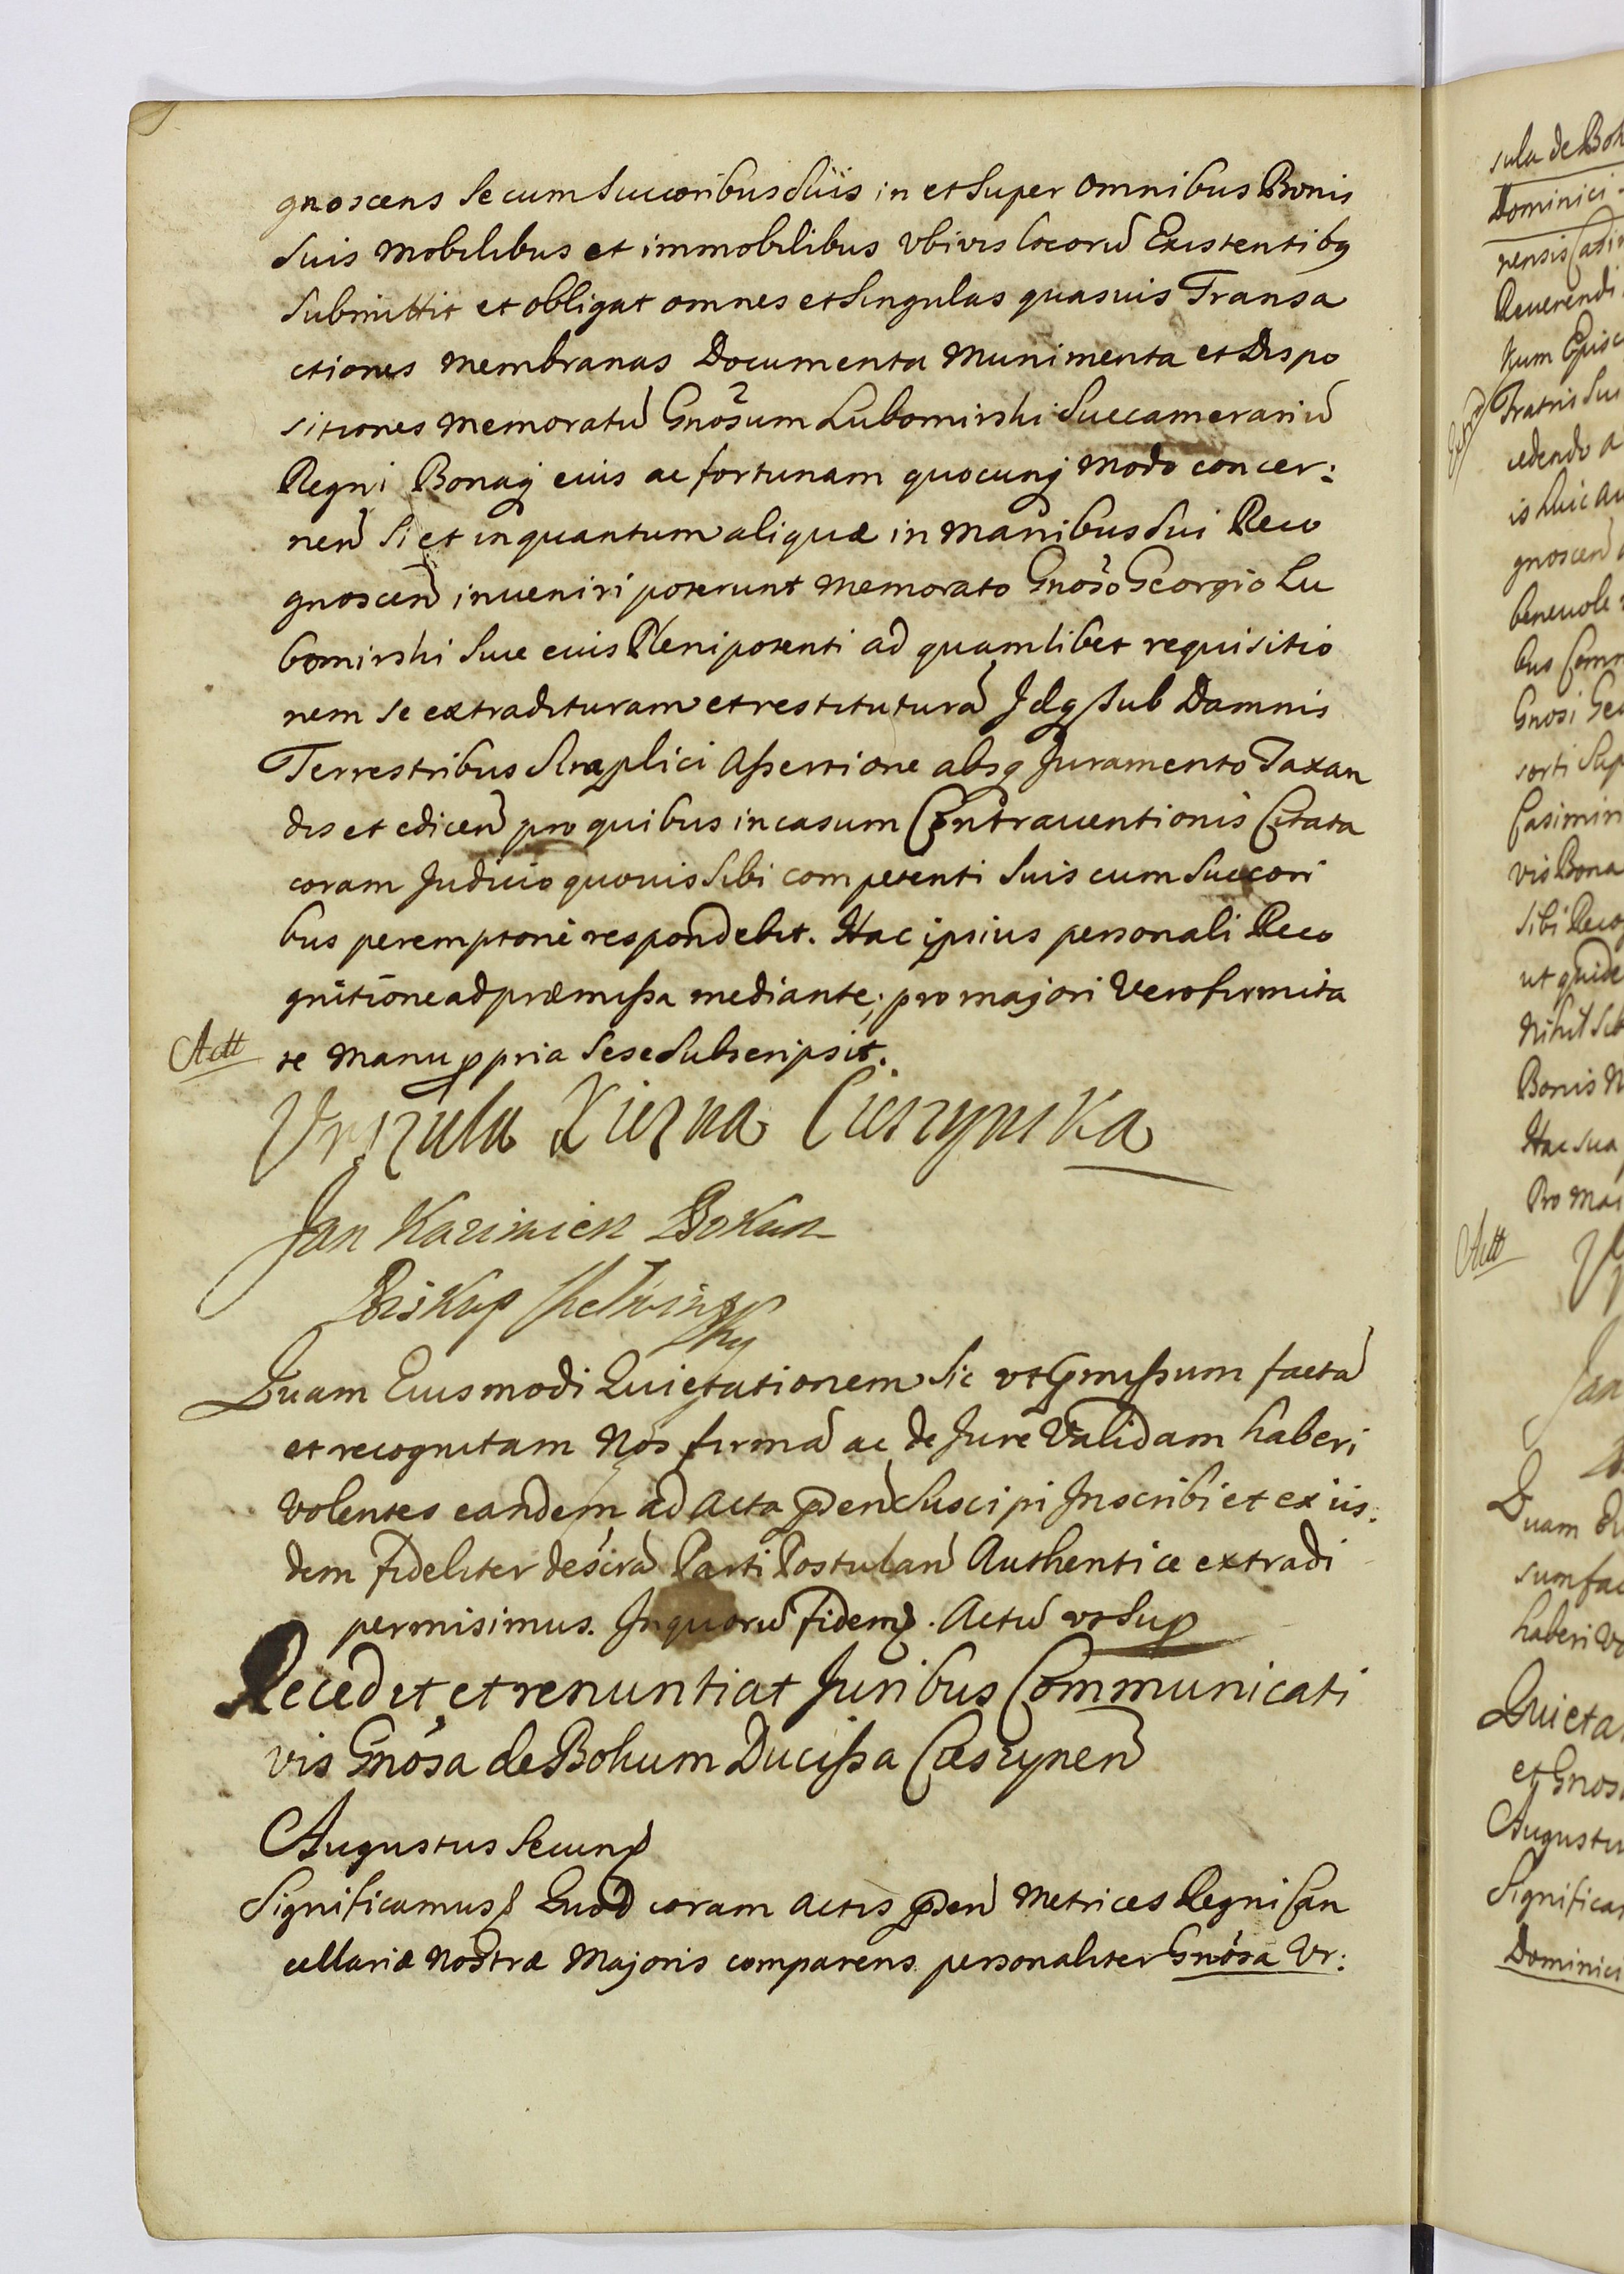 gnoscens se cum Succoribus Suis in et Super omnibus Bonis
Suis mobilibus et immobilibus vbivis locorũ Existentibq
Submittit et obligat omnes et Singulas quasuis Transa
ctiones membranas Documenta munimenta et Dispo
sitiones memoratũ Gnõsum Lubomirski Succamerariũ
Regni Bonaq eius ac fortunam quocunq modo concer:
nen̄ si et in quantum aliquæ in manibus Sui Reco
gnoscen̄ inueniri poterunt memorato Gnõso Georgio Lu
bomirski Siue eius Plenipotenti ad quamlibet requisitio
nem se extradituram et restituturā Idq sub Damnis
Terrestribus Simplici Assertione absq Juramento Taxan
dis et edicen̄ pro quibus in casum Contrauentionis Citata
coram Judicio quouis Sibi competenti Suis cum Succori
bus peremptorie respondebit. Hac ipsius personali Reco
gnitione ad præmissa mediante; pro majori vero firmita
Act te manu ppria Sese Subscripsit.
Vrszula Xiezna Cieszynska
Jan Kazimierz Bokun
Biskup
Quam Eiusmodi Quietationem Sic vt pmissum factā
et recognitam Nos firmā ac de Jure Validam haberi
volentes eandem ad acta pden̄ Suscipi Inscribi et ex iis:
dem fideliter descrā Parti Postulan̄ Authentice extradi
permisimus. In quorũ fidem. Actũ vt Sup
Recedit et renuntiat Juribus Communicati
vis Gnõsa de Bokum Ducissa Cieszynen̄
Augustus Secund
Significamus Quod coram actis pden̄ Metrices Regni Can
cellariæ nostræ Majoris comparens personaliter Gnõsa Vr:
sula de Bok
Dominici
Reuerendi
Fratris Sui
cedendo a
is huic
gnoscen̄
beneuole
Gnosi Geo
sorti
Casimiri
vis Bona
Sibi Recog
ut quide
Nihil Sib
Bonis
Hac sua
Pro mai
Act
Jan
Quam
sum fac
haberi vo
Quieta
et Gnos
Augustu
Significa
Dominici